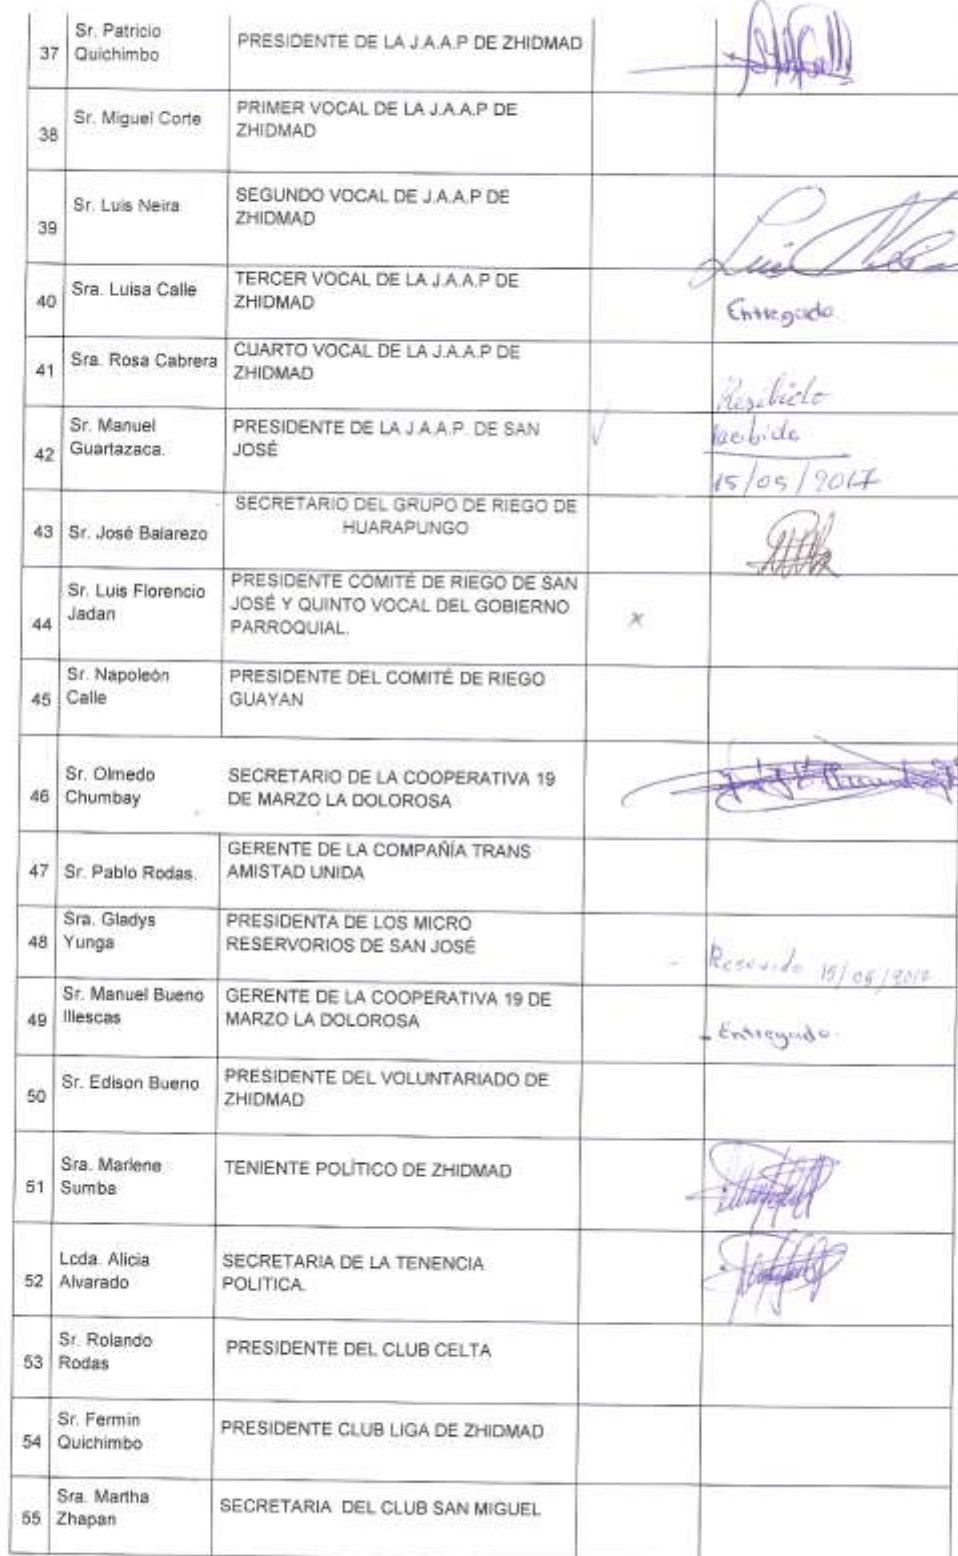 Sr. Patricio
37 Quichimbo PRESIDENTE DE LA J.A.A.P DE ZHIDMAD
38 Sr. Miguel Corte PRIMER VOCAL DE LA J.A.A.P DE
ZHIDMAD
39 Sr. Luis Neira SEGUNDO VOCAL DE J.A.A.P DE
ZHIDMAD
Luis Neira
40 Sra. Luisa Calle TERCER VOCAL DE LA J.A.A.P DE
ZHIDMAD Entregado.
41 Sra. Rosa Cabrera CUARTO VOCAL DE LA J.A.A.P DE
ZHIDMAD
Recibido
42 Sr. Manuel PRESIDENTE DE LA J.A.A.P. DE SAN
Guartazaca. JOSÉ
recibido
15/05/2017
43 Sr. José Balarezo SECRETARIO DEL GRUPO DE RIEGO DE
HUARAPUNGO
44 Sr. Luis Florencio PRESIDENTE COMITÉ DE RIEGO DE SAN
Jadan JOSÉ Y QUINTO VOCAL DEL GOBIERNO x
PARROQUIAL.
45 Sr. Napoleón PRESIDENTE DEL COMITÉ DE RIEGO
Calle GUAYAN
46 Sr. Olmedo SECRETARIO DE LA COOPERATIVA 19
Chumbay DE MARZO LA DOLOROSA
47 Sr. Pablo Rodas. GERENTE DE LA COMPAÑÍA TRANS
AMISTAD UNIDA
48 Sra. Gladys PRESIDENTA DE LOS MICRO
Yunga RESERVORIOS DE SAN JOSÉ
- 15/05/2017
49 Sr. Manuel Bueno GERENTE DE LA COOPERATIVA 19 DE
Illescas MARZO LA DOLOROSA - Entregado.
50 Sr. Edison Bueno PRESIDENTE DEL VOLUNTARIADO DE
ZHIDMAD
51 Sra. Marlene TENIENTE POLÍTICO DE ZHIDMAD
Sumba
52 Lcda. Alicia SECRETARIA DE LA TENENCIA
Alvarado POLITICA.
53 Sr. Rolando PRESIDENTE DEL CLUB CELTA
Rodas
54 Sr. Fermin PRESIDENTE CLUB LIGA DE ZHIDMAD
Quichimbo
55 Sra. Martha SECRETARIA DEL CLUB SAN MIGUEL
Zhapan